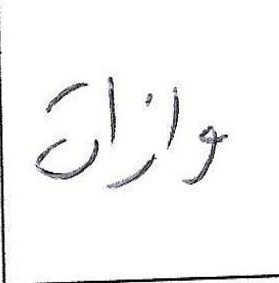 وازات